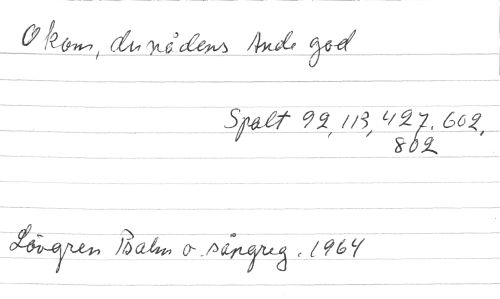 O kom, du nådens Ande god
Spalt 92, 113, 427. 602,
802
Lövgren Psalm o. sångreg. 1964